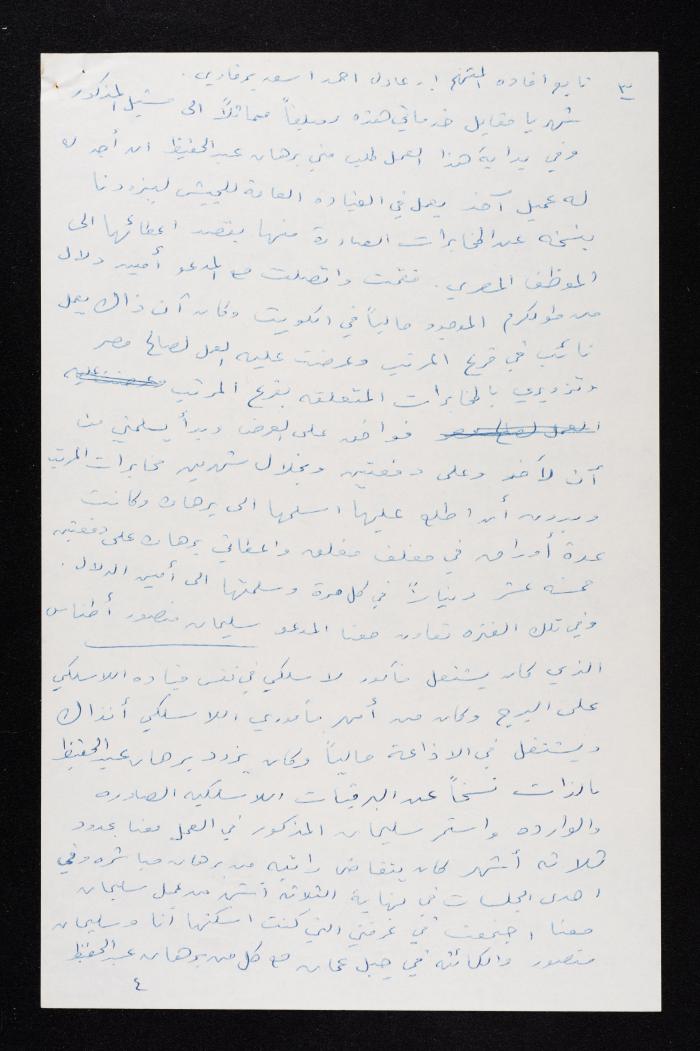 ٣
تابع افاده المتهم ابو عادل احمد اسعد
شهريا مقابل خدماتي هذه ومبلغاً مماثلاً الى المذكور
وفي بداية هذا العمل طلب مني برهان عبد الحفيظ ان أجد له
له عميل آخر يعمل في القياده العامة للجيش ليزودنا
بنسخه عن المخابرات الصادرة منها بقصد اعطائها الى
الموظف المصري . فقمت واتصلت مع المدعو أمين دلال
من طولكرم الموجود حالياً في الكويت وكان آن ذاك يعمل
نائب في فرع المرتب وعرضت عليه العمل لصالح مصر
وتزويدي بالمخابرات المتعلقه بفرع المرتب وعرضت عليه
العمل لصالح مصر فوافق على العرض وبدأ يسلمني من
آن لآخر وعلى دفعتين وبخلال شهرين مخابرات المرتب
وبدون أن اطلع عليها اسلمها الى برهان وكانت
عدة أوراق في مغلف مغلق واعطاني برهان على دفعتين
خمسة عشر ديناراً في كل مرة وسلمتها الى أمين الدلال .
وفي تلك الفتره تعاون معنا المدعو سليمان منصور أطناس
الذي كان يشتغل مأمور لاسلكي في نفس قياده اللاسلكي
على البرج وكان من أمهر مأموري اللاسلكي أنذاك
ويشتغل في الاذاعة حالياً وكان يزود برهان عبد الحفيظ
بالذات نسخاً عن البرقيات اللاسلكيه الصادره
والوارده واستمر سليمان المذكور في العمل معنا بحدود
ثلاثه أشهر كان يتقاضى راتبه من برهان مباشره وفي
احدى الجلسات في نهاية الثلاثه اشهر من عمل سليمان
معنا اجتمعت في غرفتي التي كنت اسكنها أنا وسليمان
منصور والكائنه في جبل عمان مع كل من برهان عبد الحفيظ
٤